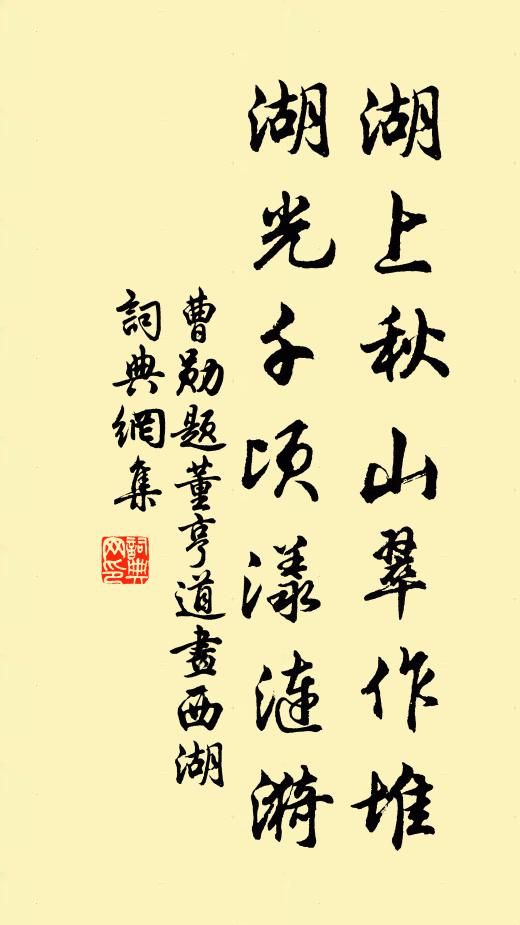 湖上秋山翠作堆
湖光千顷漾涟漪
曹勋题董亨道畫西湖
詞典網集
詞典网印